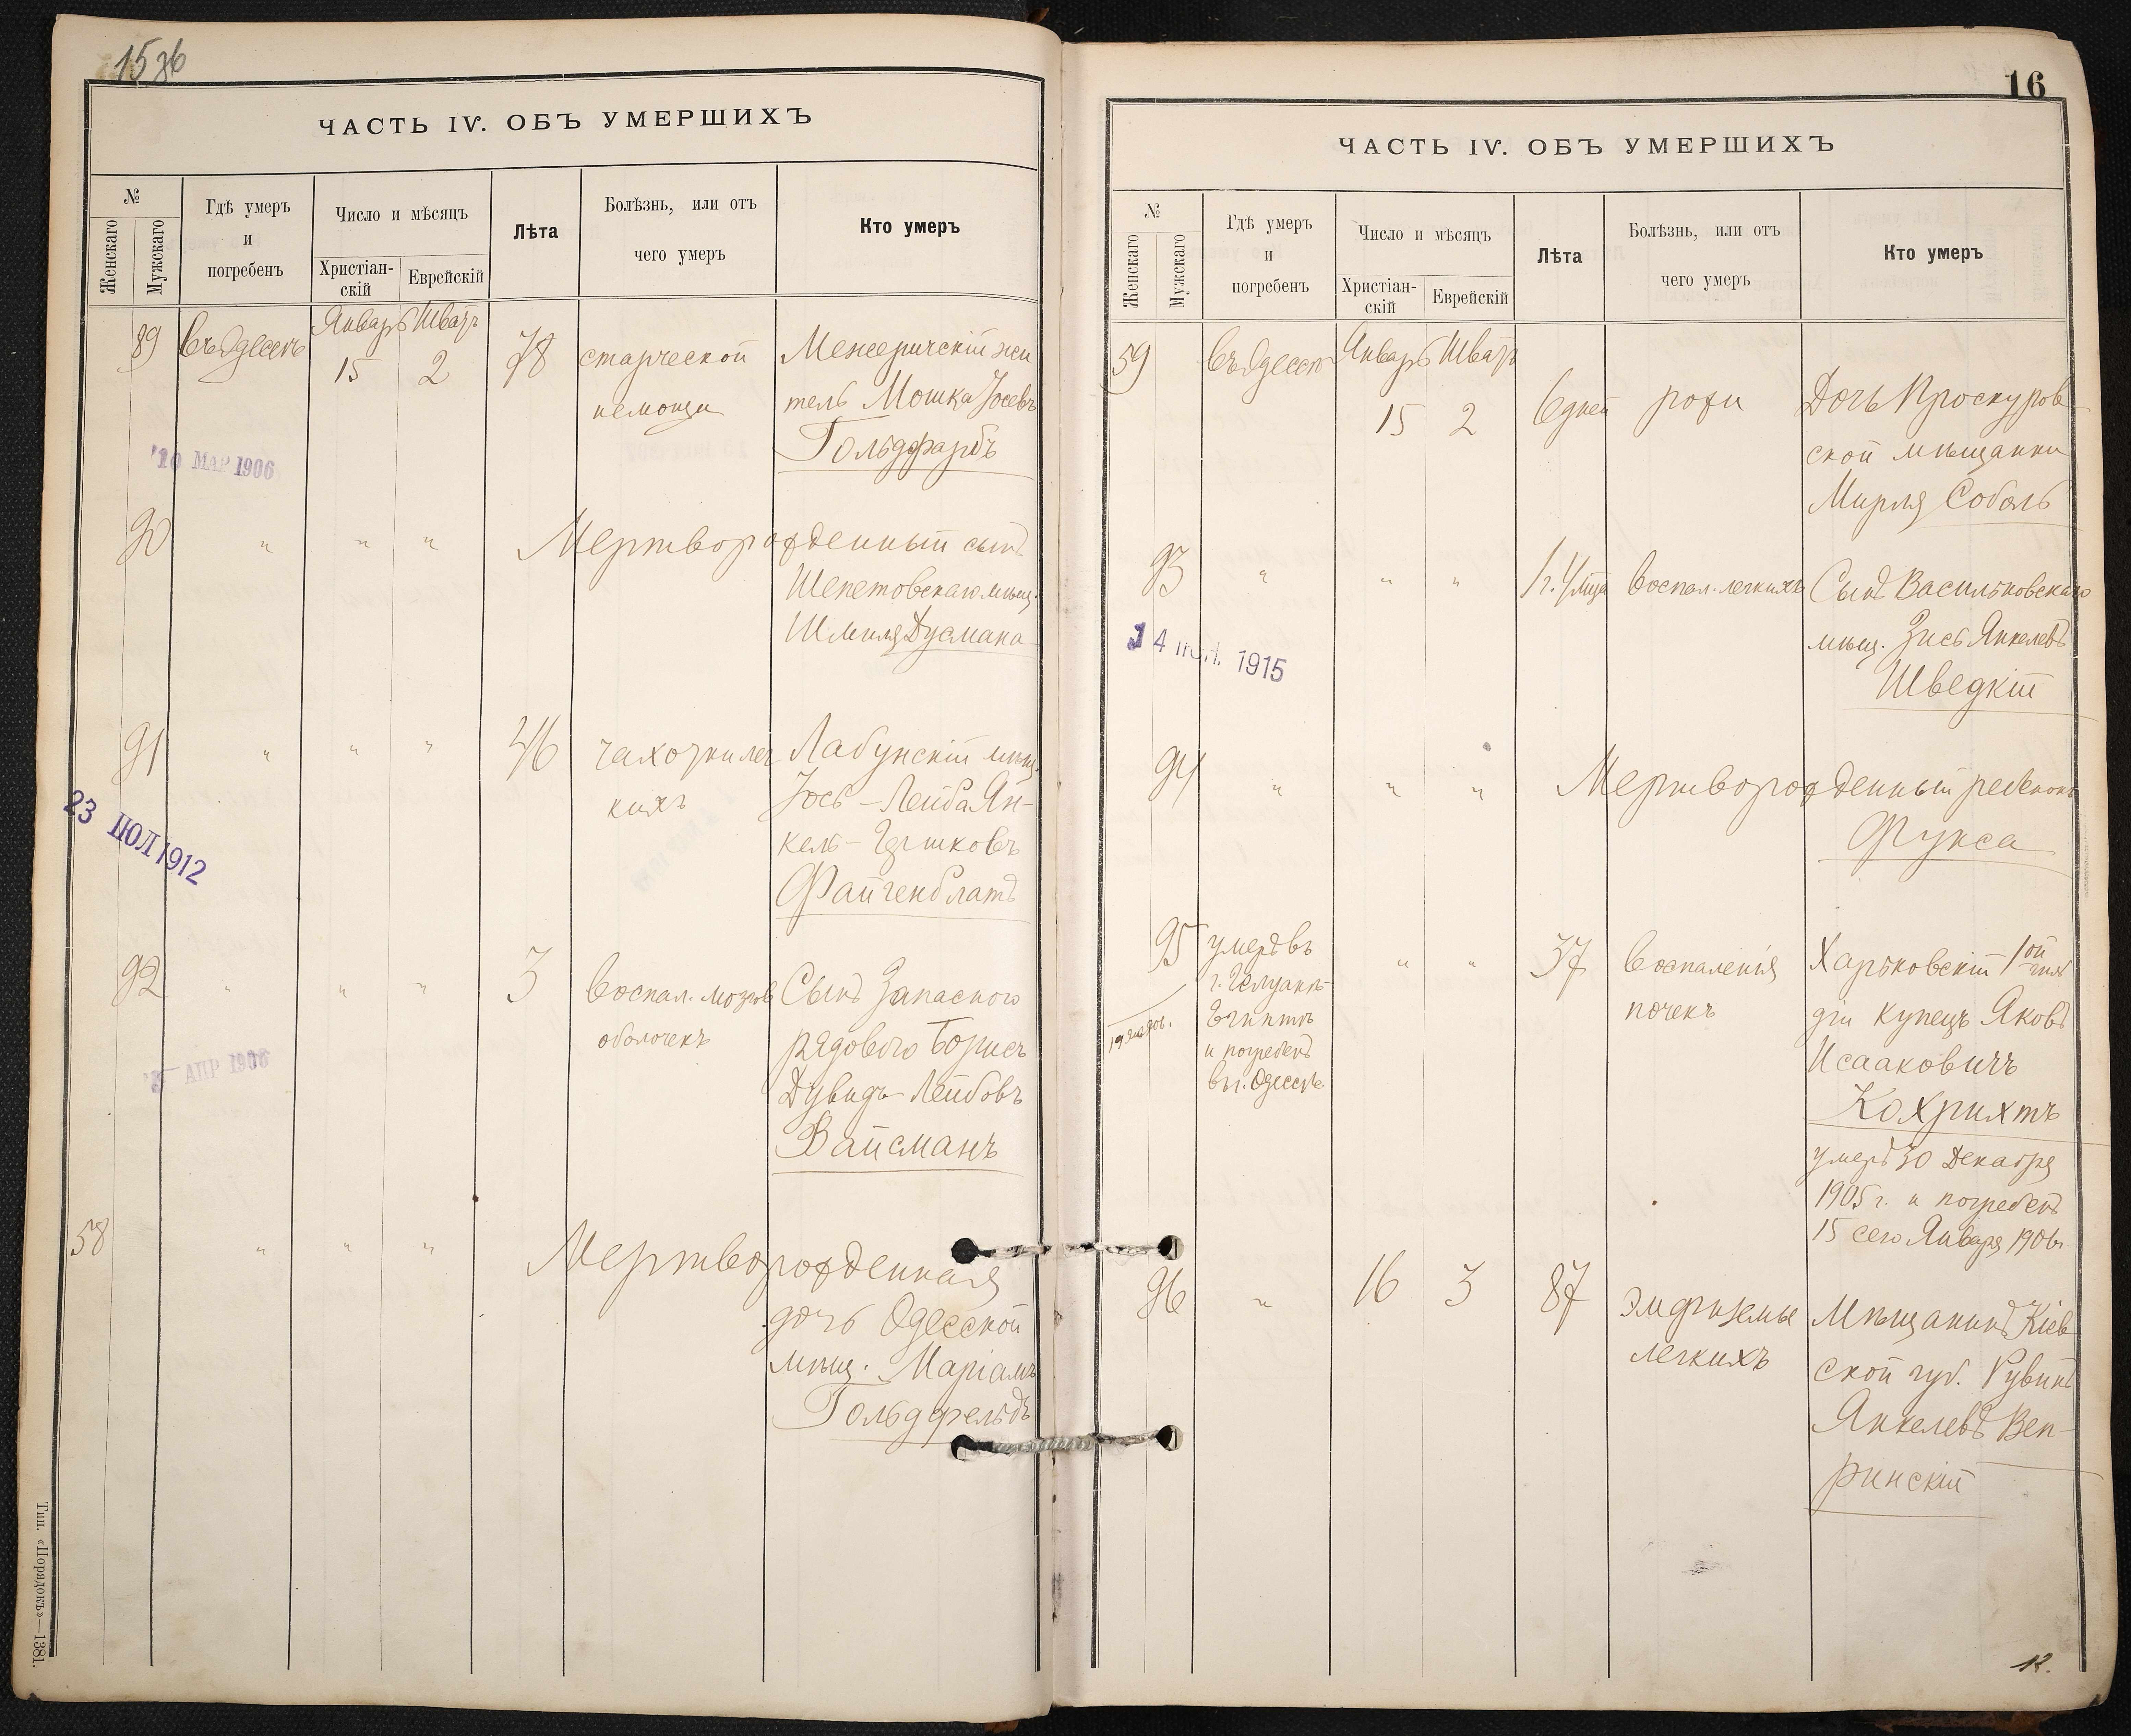 15 об
ЧАСТЬ IV. ОБЪ УМЕРШИХЪ
№
Женскаго
Мужскаго
Гдѣ умеръ
и
погребенъ
Число и мѣсяцъ
Христіан-
скій
Еврейскій
Лѣта
Болѣзнь, или отъ
чего умеръ
Кто умеръ
89 въ Одессѣ Январь 15 Шватъ 2 78 старческой Межеричскій жи
немощи тель Мошка Іосевъ
Гольдфарбъ
10 МАР 1906
90 " " " Мертворожденный сынъ
Шепетовскаго мѣщ.
Шмиля Дусмана
91 " " " 46 чахотки лег Лабунскій мѣщ.
кихъ Іось-Лейба Ян-
кель-Гершковъ
Файгенблатъ
23 ІЮЛ 1912
92 " " " 3 воспал. мозгов Сынъ Запасного
оболочекъ рядового Борисъ
Дувидъ-Лейбовъ
Вайсманъ
АПР 1906
58 " " " Мертворожденная
дочь Одесской
мѣщ. Маріамъ
Гольдфельдъ
Тип. «Порядокъ»—1381.
16
ЧАСТЬ IV. ОБЪ УМЕРШИХЪ
№
Женскаго
Мужскаго
Гдѣ умеръ
и
погребенъ
Число и мѣсяцъ
Христіан-
скій
Еврейскій
Лѣта
Болѣзнь, или отъ
чего умеръ
Кто умеръ
59 въ Одессѣ Январь 15 Шватъ 2 6 дней рожи Дочь Проскуров
ской мѣщанки
Мирля Соболь
93 " " " 1 г. 4 мца воспал. легкихъ Сынъ Васильковскаго
мѣщ. Зись Янкелевъ
Шведкій
14 1915
94 " " " Мертворожденный ребенокъ
Фукса
95 умеръ въ " " 37 воспаленія Харьковскій 1ой гиль
г. Гелуанѣ- почекъ діи купецъ Яковъ
Египтѣ Исааковичъ
и погребенъ Кохрихтъ
въ г. Одессѣ умеръ 30 Декабря
1905 г. и погребенъ
15 сего Января 1906 г.
96 " 16 3 87 эмфиземы Мѣщанинъ Кіев
легкихъ ской губ. Рувинъ
Янкелевъ Веп-
ринскій